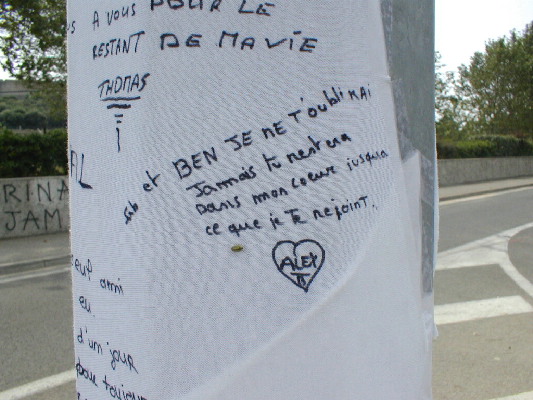 A VOUS POUR LE
RESTANT DE MA VIE
THOMAS
et BEN JE NE T'oubliRAi
Jamais tu restera
Dans mon coeur jusqua
ce que je Te rejoint.
ALEX
RINA
JAM
ami
eu
d'un jour
pour toujours